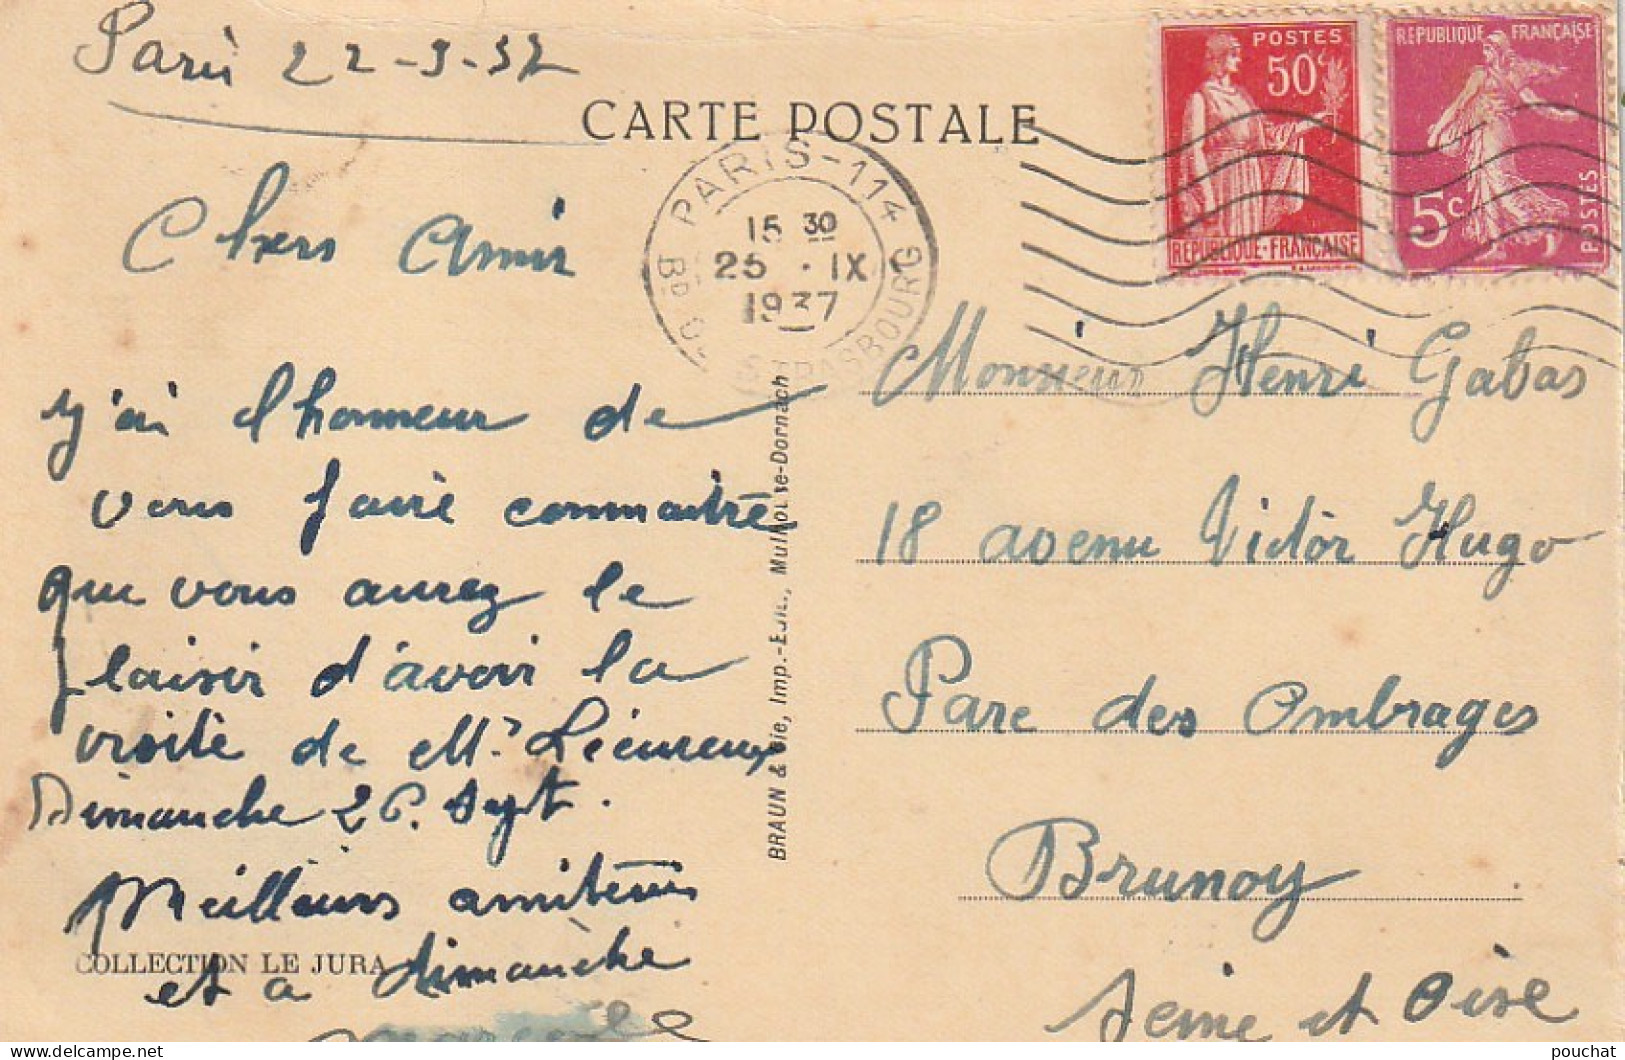 Paris 22-9-37
CARTE POSTALE
PARIS-114
Bd DE STRASBOURG
15 30
25 · IX
1937
POSTES
50c
REPUBLIQUE·FRANÇAISE
REPUBLIQUE FRANÇAISE
5c
POSTES
Chers Amis
j'ai l'honneur de
vous faire connaitre
que vous aurez le
plaisir d'avoir la
visite de Mr Lécureux
Dimanche 26 Sept.
Meilleurs amitiés
et a dimanche
COLLECTION LE JURA
BRAUN & Cie, Imp.-Edit., Mulhouse-Dornach
Monsieur Henri Gabas
18 avenu Victor Hugo
Parc des Ombrages
Brunoy
Seine et Oise
pouchat